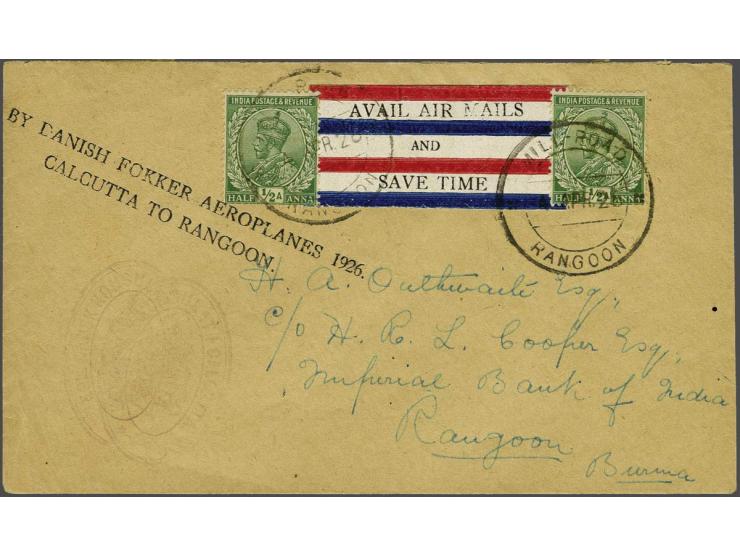 BY DANISH FOKKER AEROPLANES 1926.
CALCUTTA TO RANGOON.
INDIA POSTAGE & REVENUE
½ A
HALF ANNA
AVAIL AIR MAILS
AND
SAVE TIME
INDIA POSTAGE & REVENUE
½ A
HALF ANNA
RANGOON
ROAD
RANGOON
H. A. Outhwaite Esq.,
c/o H. R. L. Cooper Esq.,
Imperial Bank of India
Rangoon
Burma